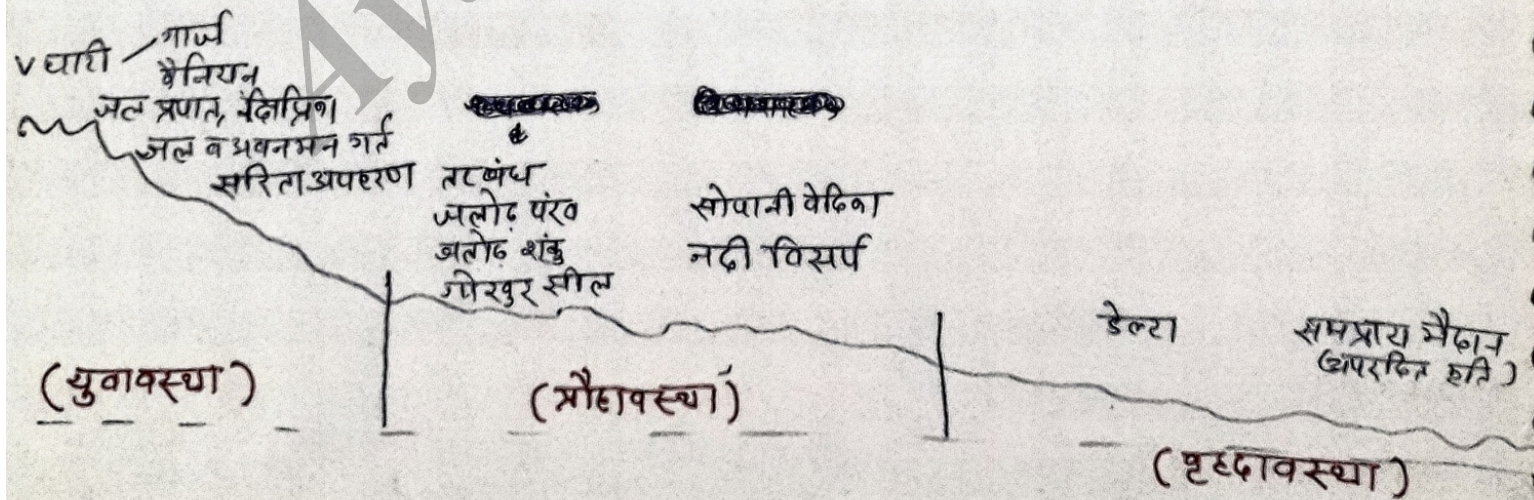 v घाटी गार्ज
कैनियन
जल प्रपात, क्षिप्रिका
जल व अवनमन गर्त
सरिता अपहरण
तटबंध
जलोढ़ पंख
जलोढ़ शंकु
गोखुर झील
सोपानी वेदिका
नदी विसर्प
डेल्टा
समप्राय मैदान
(युवावस्था)
(प्रौढावस्था)
(वृहदावस्था)
Ay